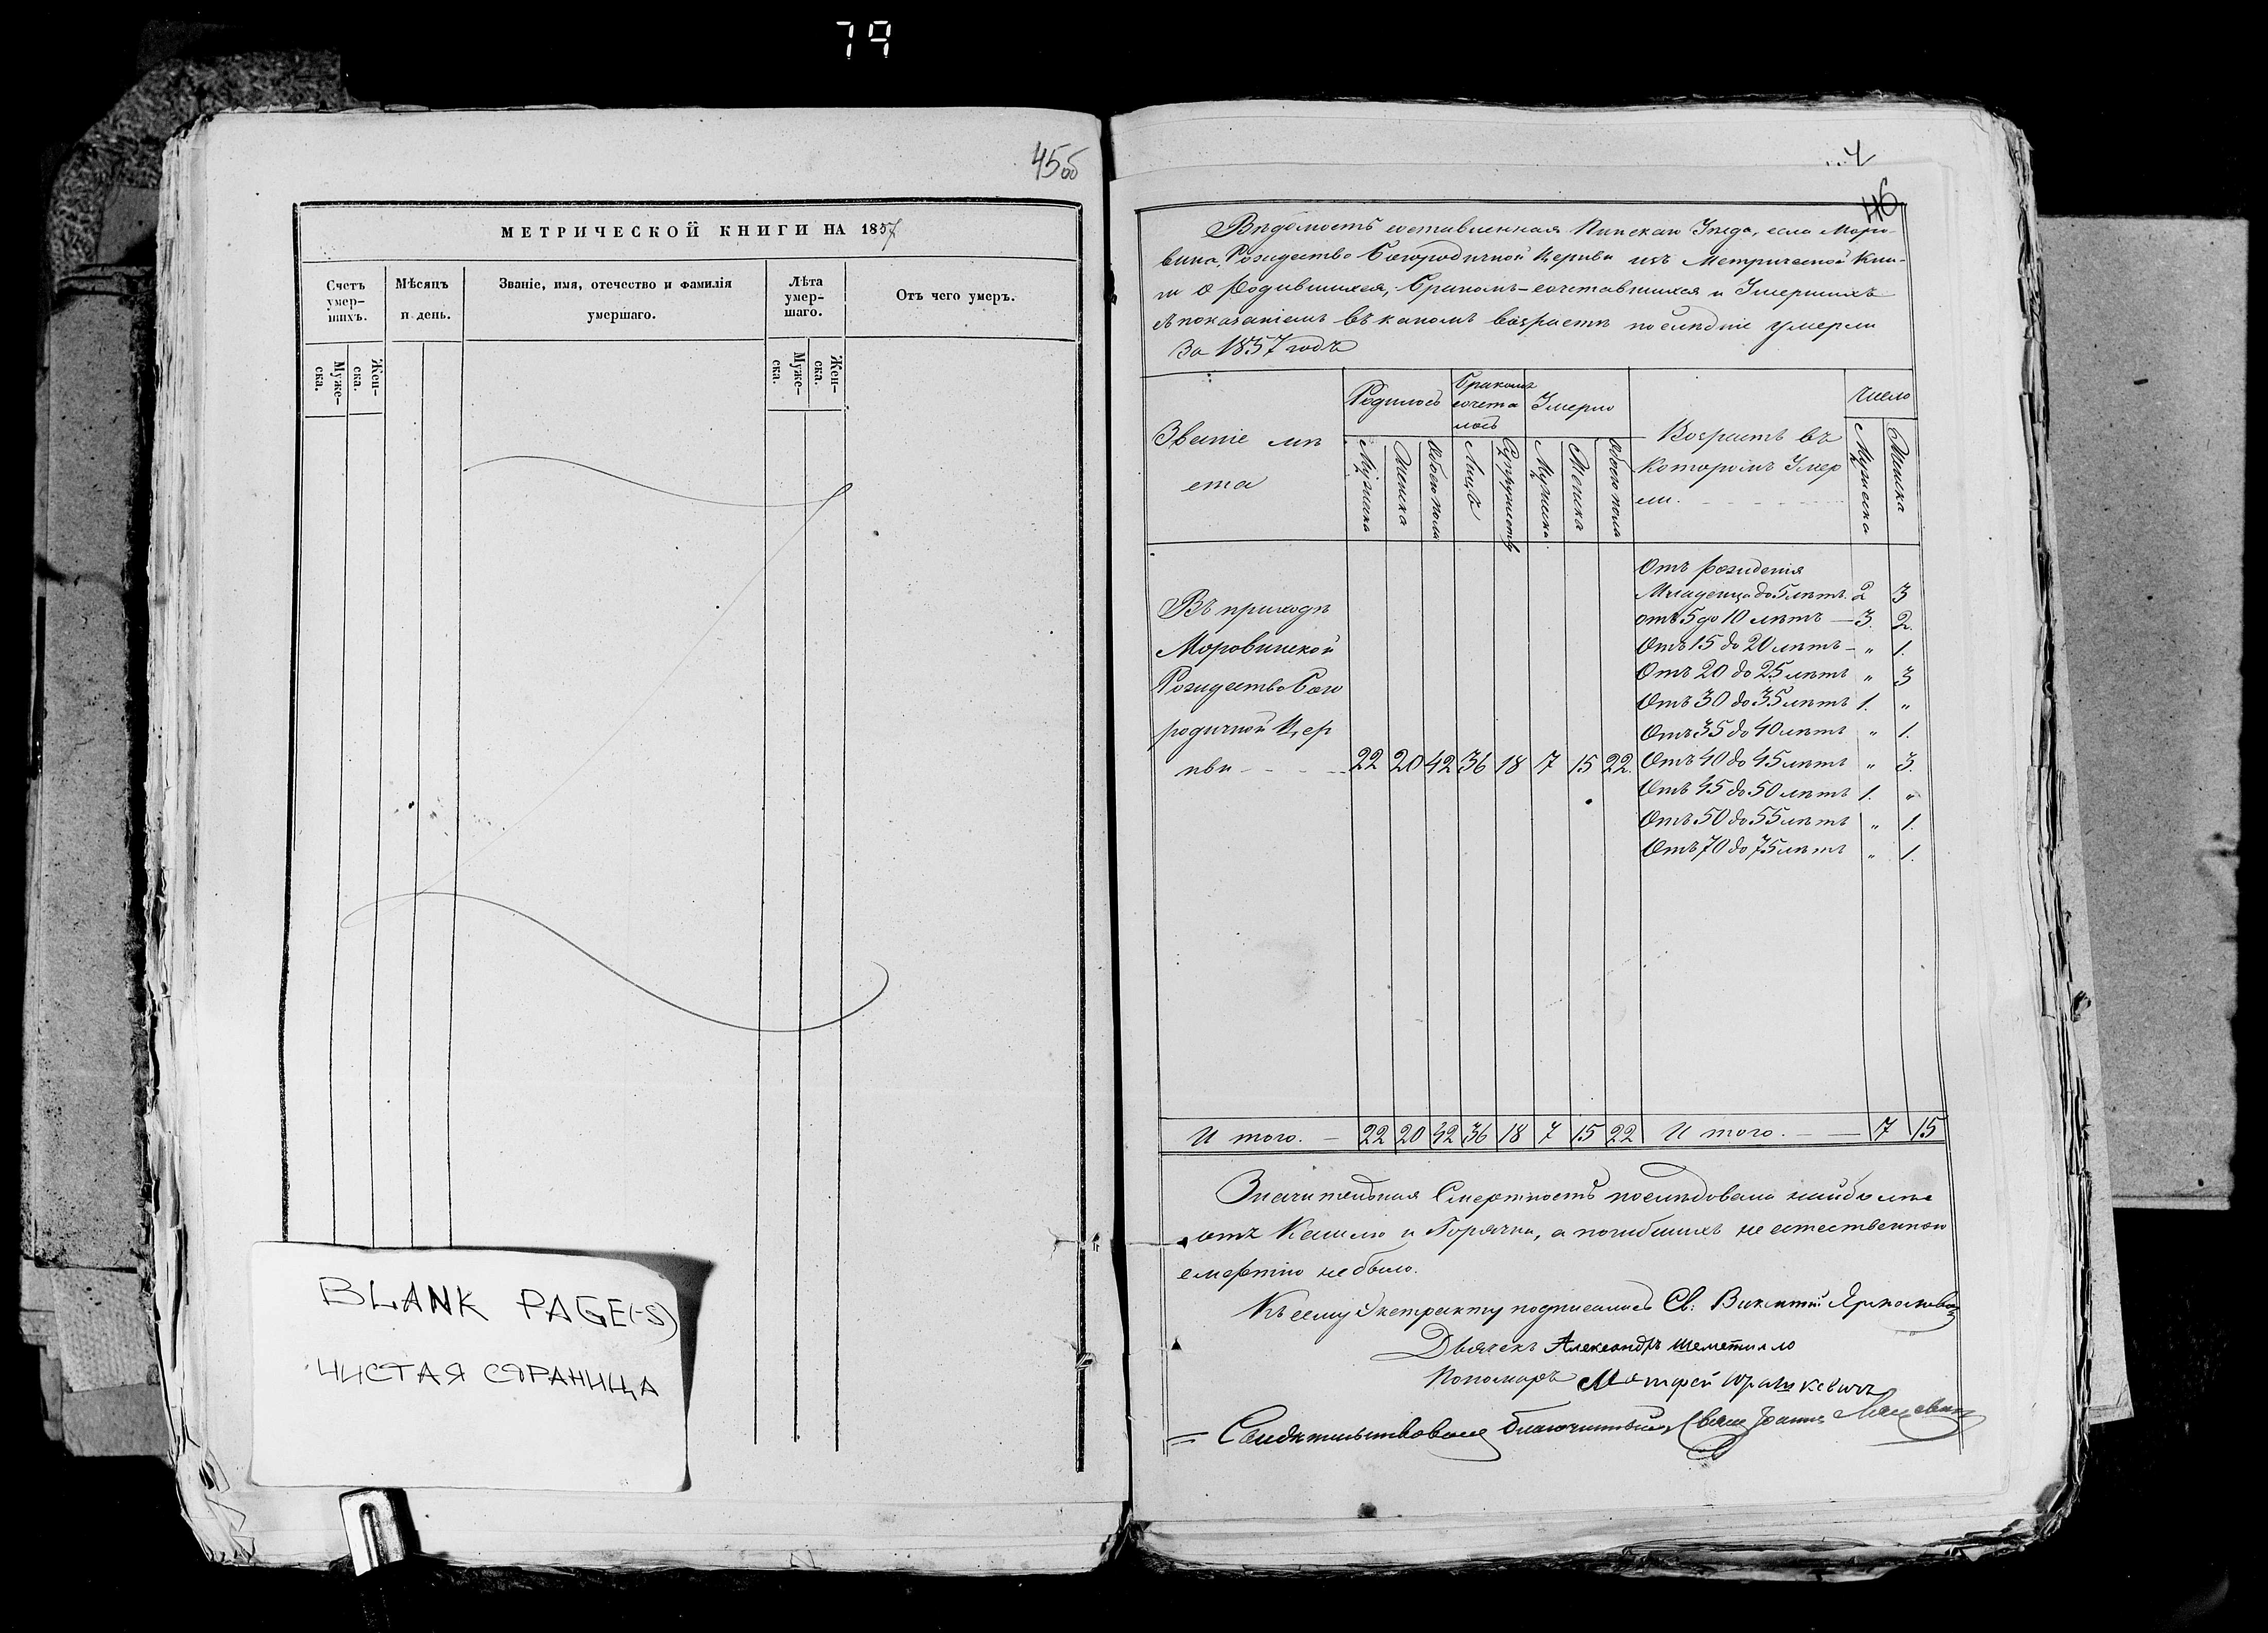 79
45об
МЕТРИЧЕСКОЙ КНИГИ НА 1857
Счетъ умер-шихъ.
Мѣсяцъ и день.
Званіе, имя, отечество и фамилія умершаго.
Лѣта умер-шаго.
Отъ чего умеръ.
Муже-ска.
Жен-ска.
Муже-ска.
Жен-ска.
BLANK PAGE(-S)
ЧИСТАЯ СТРАНИЦА
46
Вѣдомость составленная Пинскаго Уѣзда, села Моро-
вина, Рождество Богородичной Церкви изъ Метрической Кни-
ги о Родившихся, Бракомъ-сочетавшихся и Умершихъ
съ показаніемъ въ какомъ возрастѣ послѣдніе умерли
За 1857 годъ
Званіе мѣ
ста
Родилось
Бракомъ
сочета
лось
Умерло
Возрастъ въ
Которомъ Умер
ли.
Число
Мужеска
Женска
Обоего пола
Лицъ
Супружествъ
Мужеска
Женска
Обоего пола
Мужеска
Женска
Въ приходѣ
Моровинской
Рождество Бого
родичной Цер
кви 22 20 42 36 18 7 15 22.
Отъ рожденія
Младенца до 5 лѣтъ. 2 3
отъ 5 до 10 лѣтъ — 3. 2.
Отъ 15 до 20 лѣтъ — „ 1.
Отъ 20 до 25 лѣтъ „ 3
Отъ 30 до 35 лѣтъ 1. „
Отъ 35 до 40 лѣтъ „ 1.
Отъ 40 до 45 лѣтъ „ 3.
Отъ 45 до 50 лѣтъ 1. „
Отъ 50 до 55 лѣтъ „ 1.
Отъ 70 до 75 лѣтъ „ 1.
И того. — 22 20 42 36 18 7 15 22 И того. — 7 15
Значительная Смертность послѣдовала наиболѣе
отъ Кашлю и Горячки, а погибшихъ не естественною
смертію не было.
Къ сему Экстракту подписались Св: Викентій
Дьячекъ Александръ Шеметилло
Пономарь Матфей Юрашкевичъ
Свидѣтельствовалъ благочинный Свящ Іоаннъ